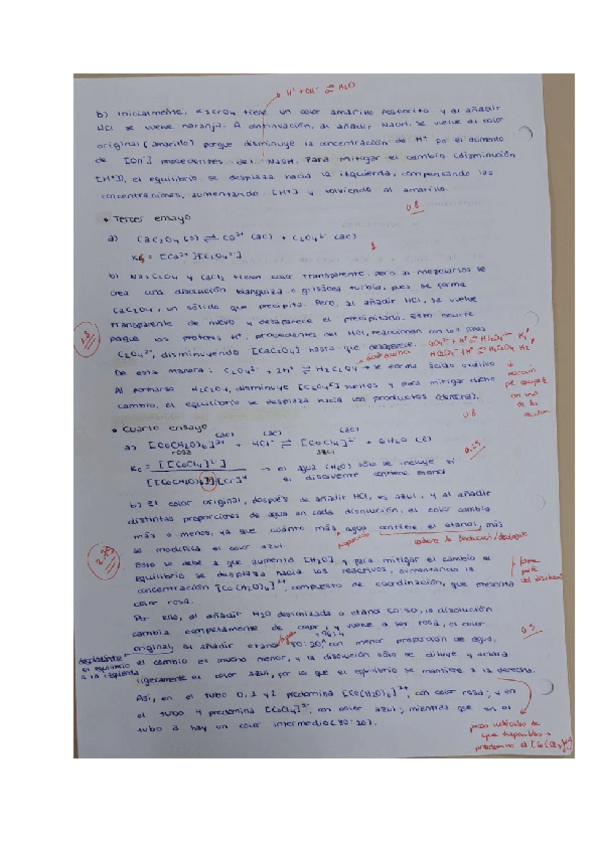 H⁺ + OH⁻ ⇌ H₂O
b) Inicialmente, K₂CrO₄ tiene un color amarillo y al añadir
HCl se vuelve naranja. A continuación, al añadir NaOH, se vuelve al color
original (amarillo) porque disminuye la concentración de H⁺ por el aumento
de [OH⁻] procedentes del NaOH. Para mitigar el cambio (disminución
[H⁺]), el equilibrio se desplaza hacia la izquierda, compensando las
concentraciones, aumentando [H⁺] y volviendo al amarillo.
0,8
• Tercer ensayo
a) CaC₂O₄ (s) ⇌ Ca²⁺ (ac) + C₂O₄²⁻ (ac)
= [Ca²⁺][C₂O₄²⁻]
1
b) Na₂C₂O₄ y CaCl₂ tienen color transparente, pero al mezclarlos se
crea una disolución blanquiza o grisácea turbia, pues se forma
CaC₂O₄, un sólido que precipita. Pero, al añadir HCl, se vuelve
transparente de nuevo y desaparece el precipitado. Esto ocurre
porque los protones H⁺, procedentes del HCl, reaccionan con los iones
C₂O₄²⁻, disminuyendo [CaC₂O₄] hasta que desaparece.
De esta manera: C₂O₄²⁻ + 2H⁺ ⇌ H₂C₂O₄ → se forma ácido oxálico
Al formarse H₂C₂O₄, disminuye [C₂O₄²⁻] sueltos y para mitigar dicho
cambio, el equilibrio se desplaza hacia los productos (derecha).
0,8
• Cuarto ensayo
(ac) (ac) (ac)
a) [Co(H₂O)₆]²⁺ + 4Cl⁻ ⇌ [CoCl₄]²⁻ + 6H₂O (l)
rosa azul
Kc = [[CoCl₄]²⁻] → el agua (H₂O) sólo se incluye si
[[Co(H₂O)₆]²⁺][Cl⁻]⁴ el disolvente contiene etanol
b) El color original, después de añadir HCl, es azul, y al añadir
distintas proporciones de agua en cada disolución, el color cambia
más o menos, ya que cuanto más agua contiene el etanol, más
se modifica el color azul.
Esto se debe a que aumenta [H₂O], y para mitigar el cambio el
equilibrio se desplaza hacia los reactivos, aumentando la
concentración [Co(H₂O)₆]²⁺, compuesto de coordinación, que presenta
color rosa.
forma parte del disolvente
Por ello, al añadir H₂O desionizada o etanol 50:50, la disolución
cambia completamente de color, y vuelve a ser rosa, el color
original. Al añadir etanol 80:20, con menor proporción de agua,
96:4
desplazándose el equilibrio a la izquierda
el cambio es mucho menor, y la disolución sólo se diluye y aclara
ligeramente el color azul, por lo que el equilibrio se mantiene a la derecha.
0,9
Así, en el tubo 0, 1 y 2 predomina [Co(H₂O)₆]²⁺, con color rosa; y en
el tubo 4 predomina [CoCl₄]²⁻, con color azul; mientras que en el
tubo 3 hay un color intermedio (80:20).